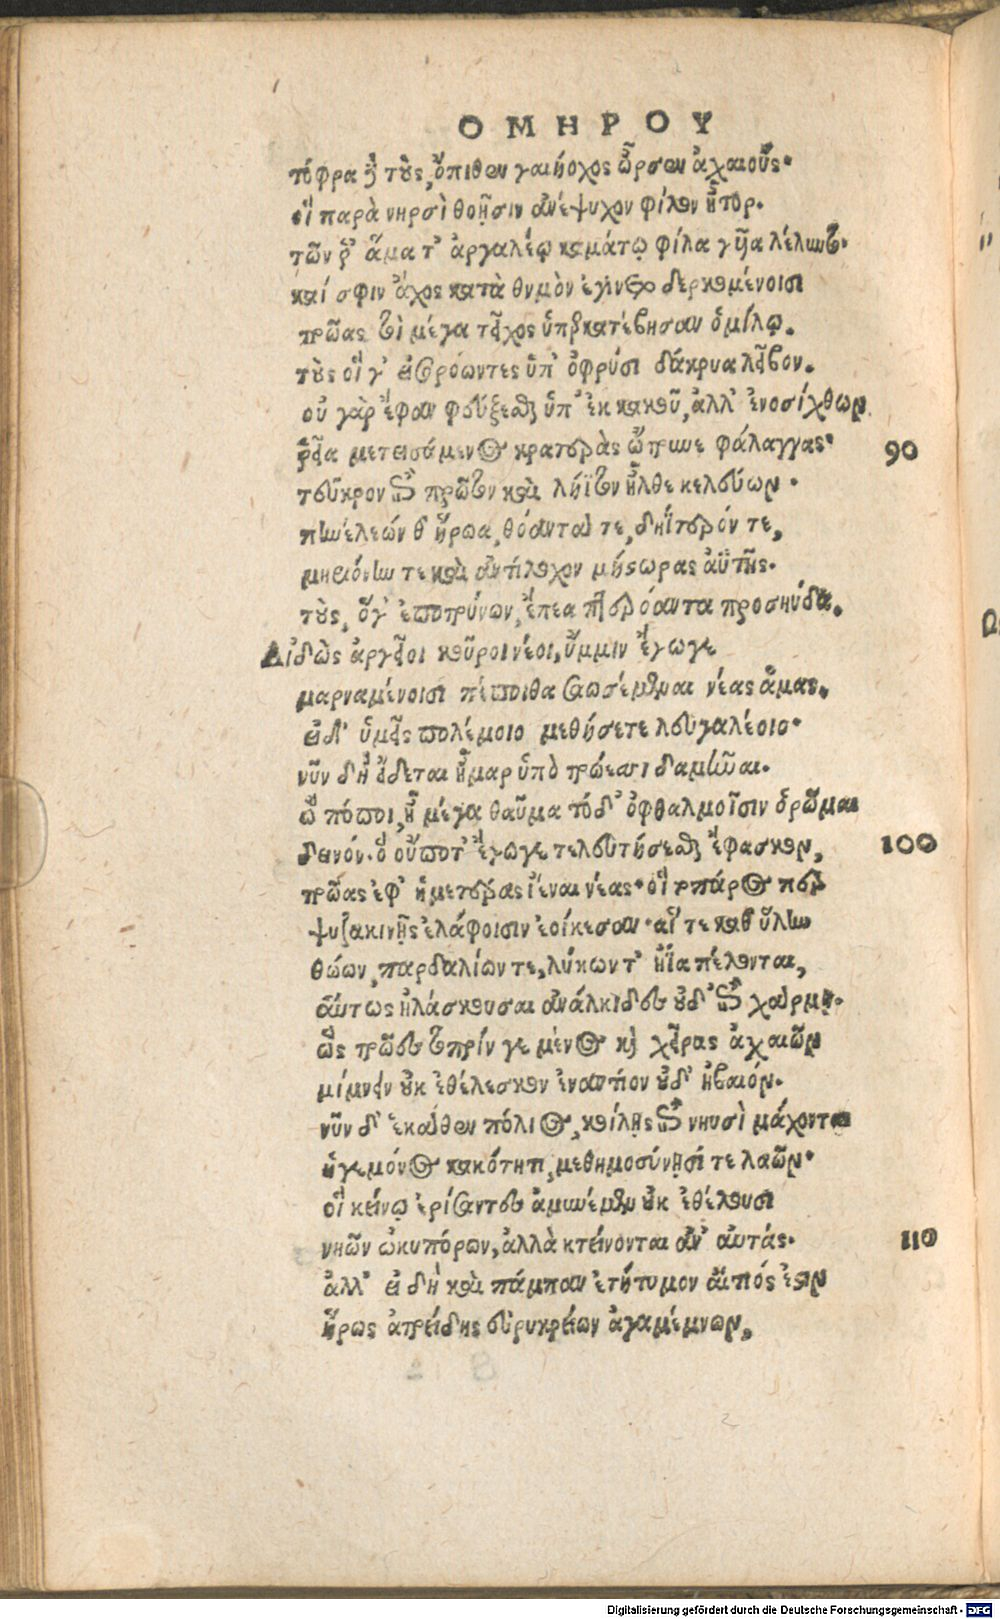 ΟΜΗΡΟΥ
τόφρα δὲ τοὺς, ὄπιθεν γαιήοχος ὦρσεν ἀχαιούς·
οἳ παρὰ νηυσὶ θοῇσιν ἀνέψυχον φίλον ἦτορ.
τῶν ῥ' ἅμα τ' ἀργαλέῳ καμάτῳ φίλα γυῖα λέλυντο·
καί σφιν ἄχος κατὰ θυμὸν ἐγίνετο δερκομένοισι
τρῶας τοὶ μέγα τεῖχος ὑπερκατέβησαν ὁμίλῳ.
τοὺς οἵ γ' εἰσορόωντες ὑπ' ὀφρύσι δάκρυα λεῖβον.
οὐ γὰρ ἔφαν φεύξεσθαι ὑπ' ἐκ κακοῦ, ἀλλ' ἐνοσίχθων
ῥεῖα μετεισάμενος κρατερὰς ὤτρυνε φάλαγγας· 90
τεῦκρον ἐπὶ πρῶτον καὶ λήϊτον ἦλθε κελεύων·
πηνέλεών θ' ἥρωα, θόαντά τε, δηΐπυρόν τε,
μηριόνην τε καὶ ἀντίλοχον μήστωρας ἀϋτῆς.
τοὺς, ὅγ' ἐποτρύνων, ἔπεα πτερόαντα προσηύδα.
Αἰδὼς ἀργεῖοι κοῦροι νέοι, ὔμμιν ἔγωγε
μαρναμένοισι πέποιθα σαωσέμεναι νέας ἁμάς.
εἰ δ' ὑμεῖς πολέμοιο μεθήσετε λευγαλέοιο·
νῦν δὴ εἴδεται ἦμαρ ὑπὸ τρώεσσι δαμῆναι.
ὢ πόποι, ἦ μέγα θαῦμα τόδ' ὀφθαλμοῖσιν ὁρῶμαι
δεινόν· ὃ οὔποτ' ἔγωγε τελευτήσεσθαι ἔφασκον, 100
τρῶας ἐφ' ἡμετέρας ἰέναι νέας· οἳ τοπάρος περ
φυζακινῇς ἐλάφοισιν ἐοίκεσαν· αἵ τε καθ' ὕλην
θώων, παρδαλίων τε, λύκων τ' ἤϊα πέλονται,
αὔτως ἠλάσκουσαι ἀνάλκιδες οὐδ' ἐπὶ χάρμη·
ὣς τρῶες τοπρίν γε μένος καὶ χεῖρας ἀχαιῶν
μίμνειν οὐκ ἐθέλεσκον ἐναντίον οὐδ' ἠβαιόν.
νῦν δ' ἑκάθεν πόλιος, κοίλῃς ἐπὶ νηυσὶ μάχονται
ἡγεμόνος κακότητι, μεθημοσύνῃσί τε λαῶν·
οἳ κείνῳ ἐρίσαντες ἀμυνέμεν οὐκ ἐθέλουσι
νηῶν ὠκυπόρων, ἀλλὰ κτείνονται ἀν' αὐτάς. 110
ἀλλ' εἰ δὴ καὶ πάμπαν ἐτήτυμον αἴτιός ἐστιν
ἥρως ἀτρείδης εὐρυκρείων ἀγαμέμνων,
Digitalisierung gefördert durch die Deutsche Forschungsgemeinschaft - DFG